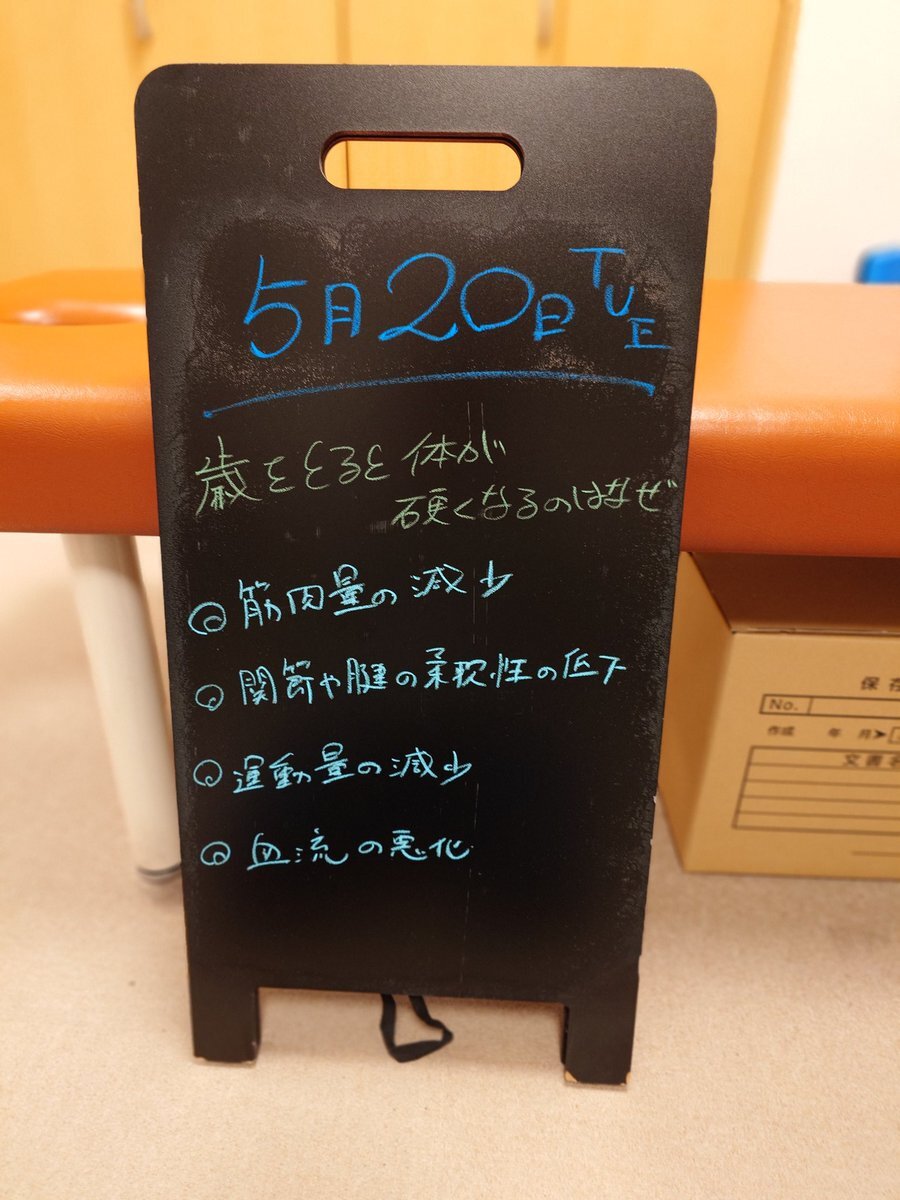 5月20日TUE
歳をとると体が
硬くなるのはなぜ
◎筋肉量の減少
◎関節や腱の柔軟性の低下
◎運動量の減少
◎血流の悪化
保存
No.
作成 年 月
文書名